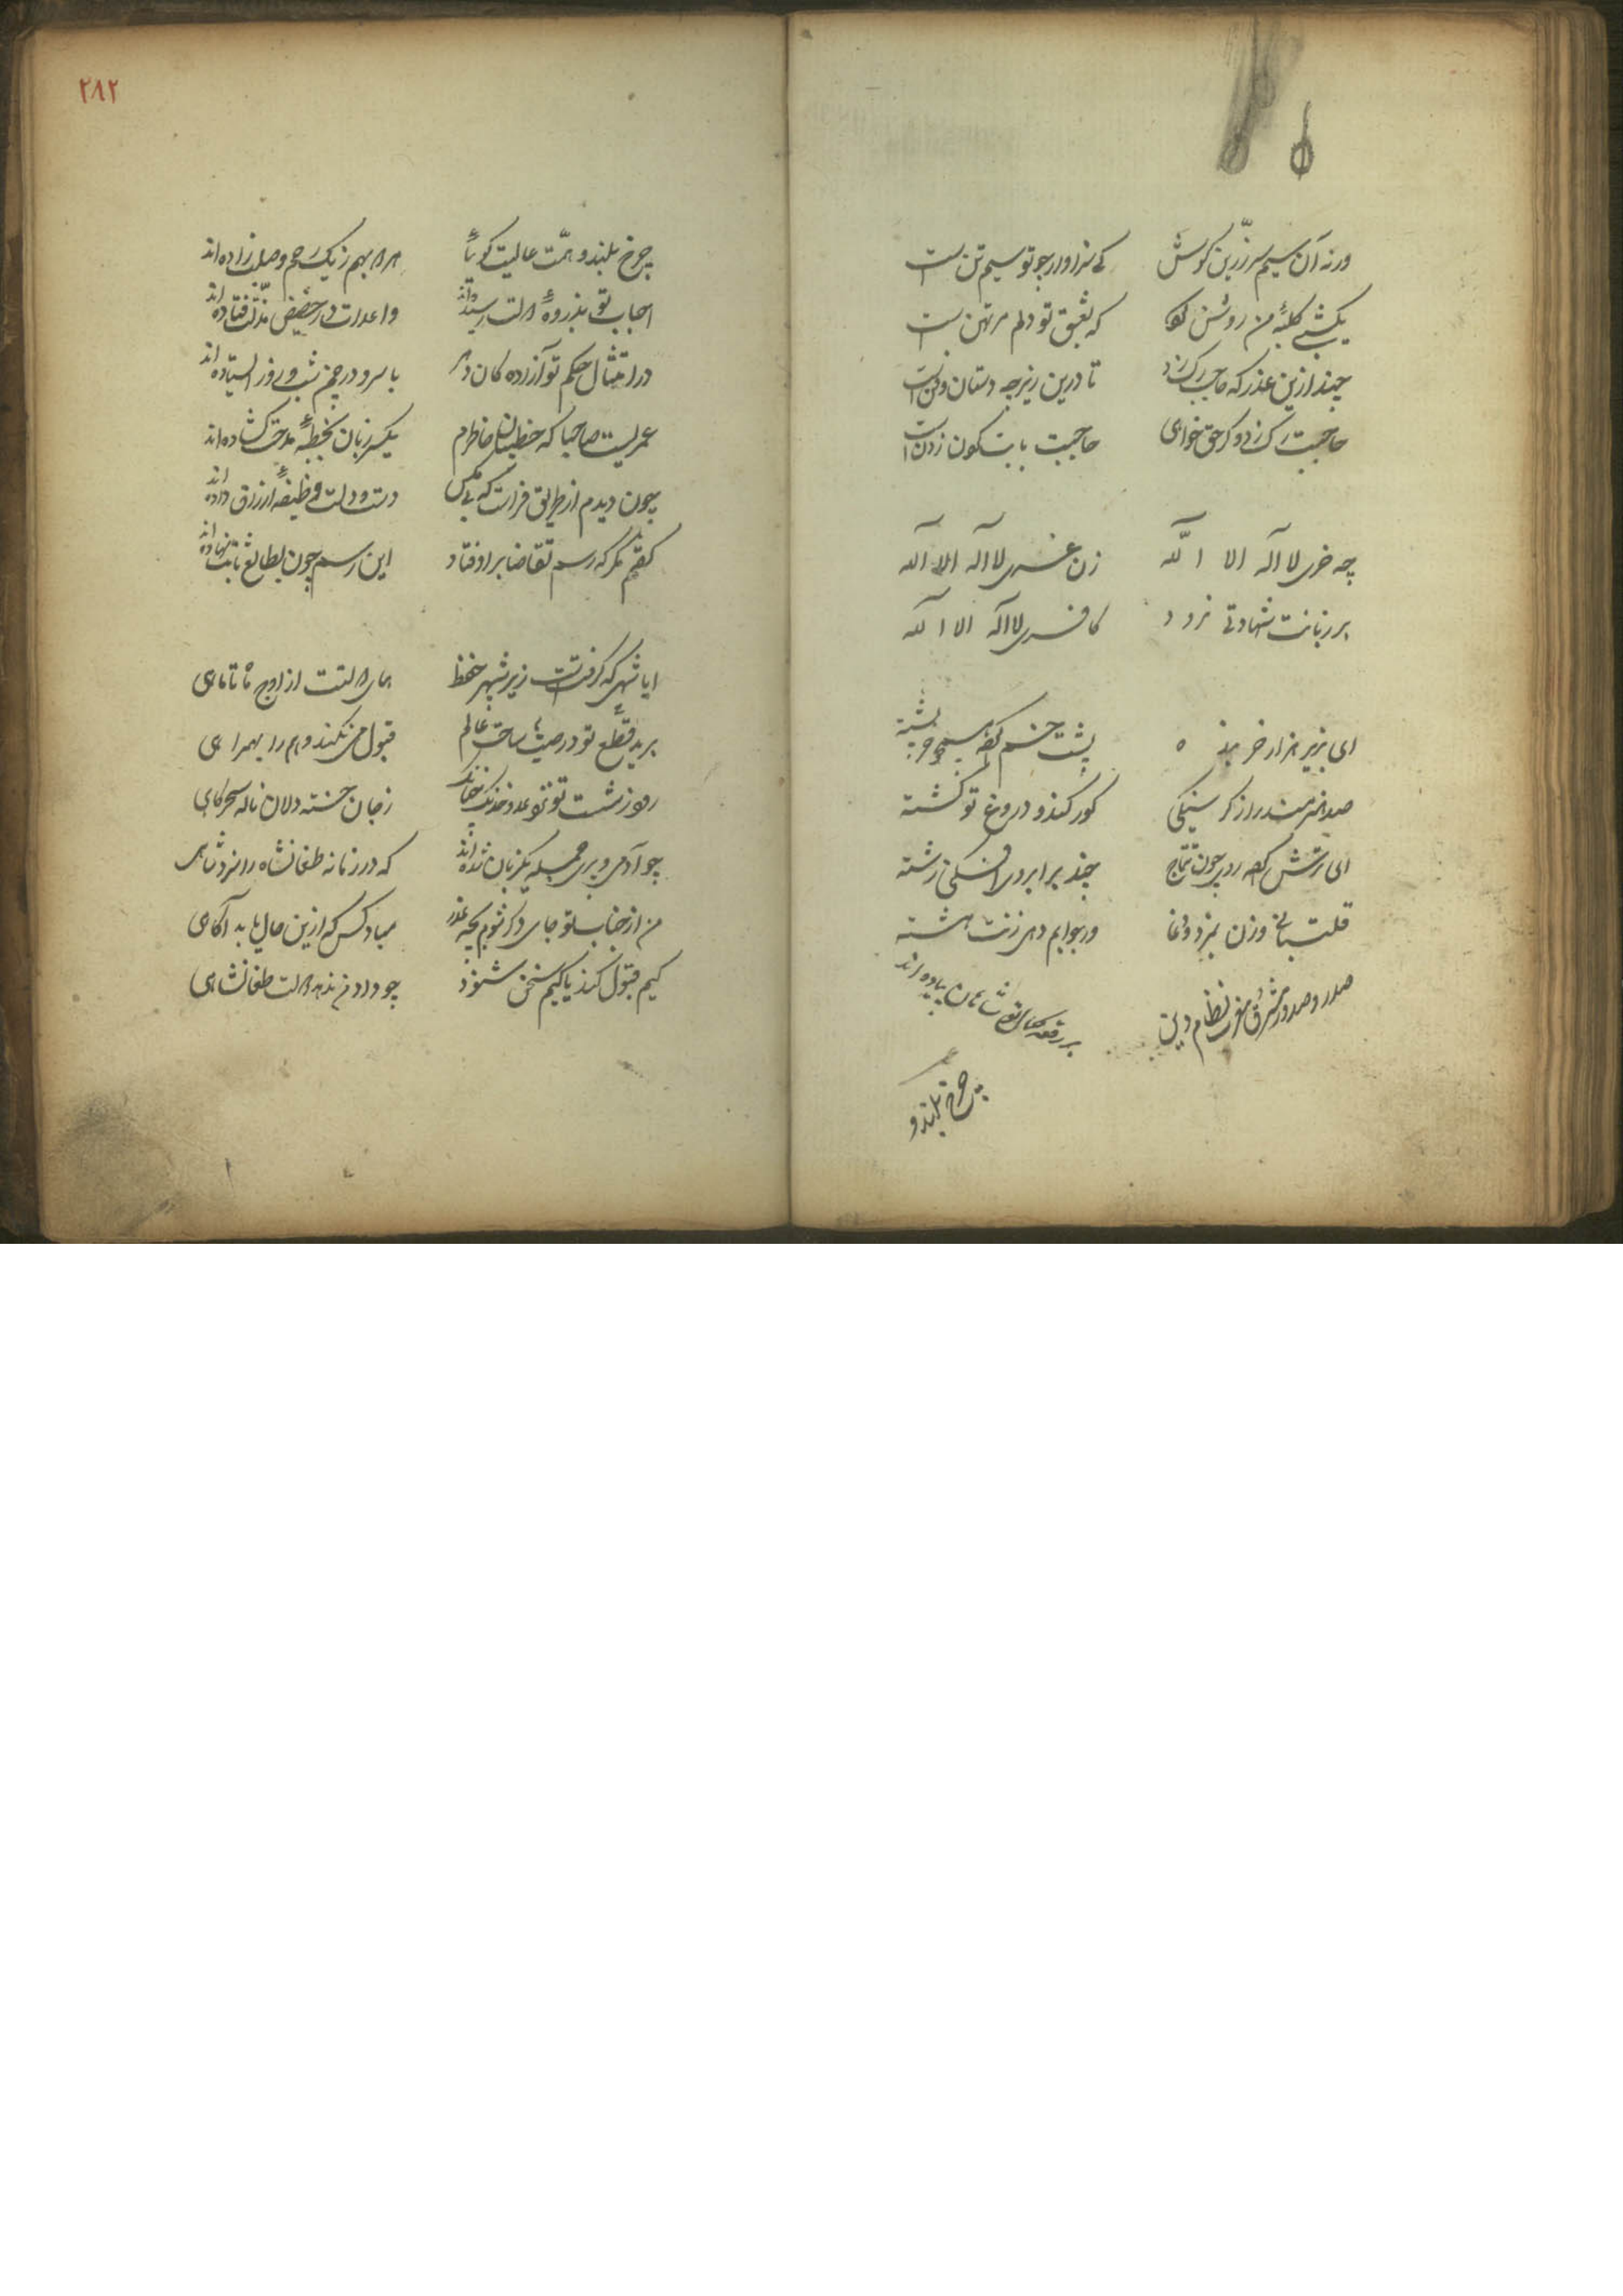 ورنه آن سیم سرزرین کوش
کی سزاوار جو تو سیم تن است
یکشبی کلبهٔ من روشن کن
که بعشق تو دلم مرتهن است
چند ازین عذر که حاجب
تا درین زیر چه دستان وفن است
حاجبت
حاجبت بابت کون زدن است
چه خری لا اله الا الله
زن غری لا اله الا الله
بر زبانت شهادتی نرود
کافری لا اله الا الله
ای بزیر هزار خر بنده
پشت خم کرده همچو خرپشته
صد هنرمند را ز کرسنگی
کور کند و دروغ تو کشته
ای ترش کرده روی چون تتماج
چند بر ابروی افکنی رشته
قلتبانی وزن بمزد و دغا
ور جوابم دهی زنت هشته
صدر و صدور مشرق و مغرب نظام دین
بر رقعهٔ تو شاهان پیاده اند
چرخ بلند و
۲۸۲
چرخ بلند و همت عالیت کوییا
هر دو بهم ز یک رحم و صلب زاده اند
احباب تو بذروهٔ دولت رسیده اند
واعدات در حضیض مذلت فتاده اند
در امتثال حکم تو آزاده کان دهر
با سرو در چمن شب و روز ایستاده اند
عمریست صاحبا که خطیبان خاطرم
یکسر زبان بخطبهٔ مدحت کشاده اند
چون دیدم از طریق فراست که بی مکس
دست و دلت وظیفهٔ ارزاق داده اند
کفتم مکر که رسم تقاضا بر اوفتاد
این رسم چون بطالع ثابت نهاده اند
ایا شهی که کرفتست زیر شهپر حفظ
همای دولتت از اوج ماه تا ماهی
برید قطع تو در صیت ساحت عالم
قبول می نکند وهم را بهمراهی
رموز شست تو
ز جان خسته دلان ناله سحرکاهی
چو آدمی و پری جمله یکزبان شده اند
که در زمانه طغانشاه را سزد شاهی
من از جناب تو جای دکر شوم بچه عذر
مباد کس که ازین حال باید آکاهی
کیم قبول کند یا کیم سخن شنود
چو داد من ندهد دولت طغانشاهی